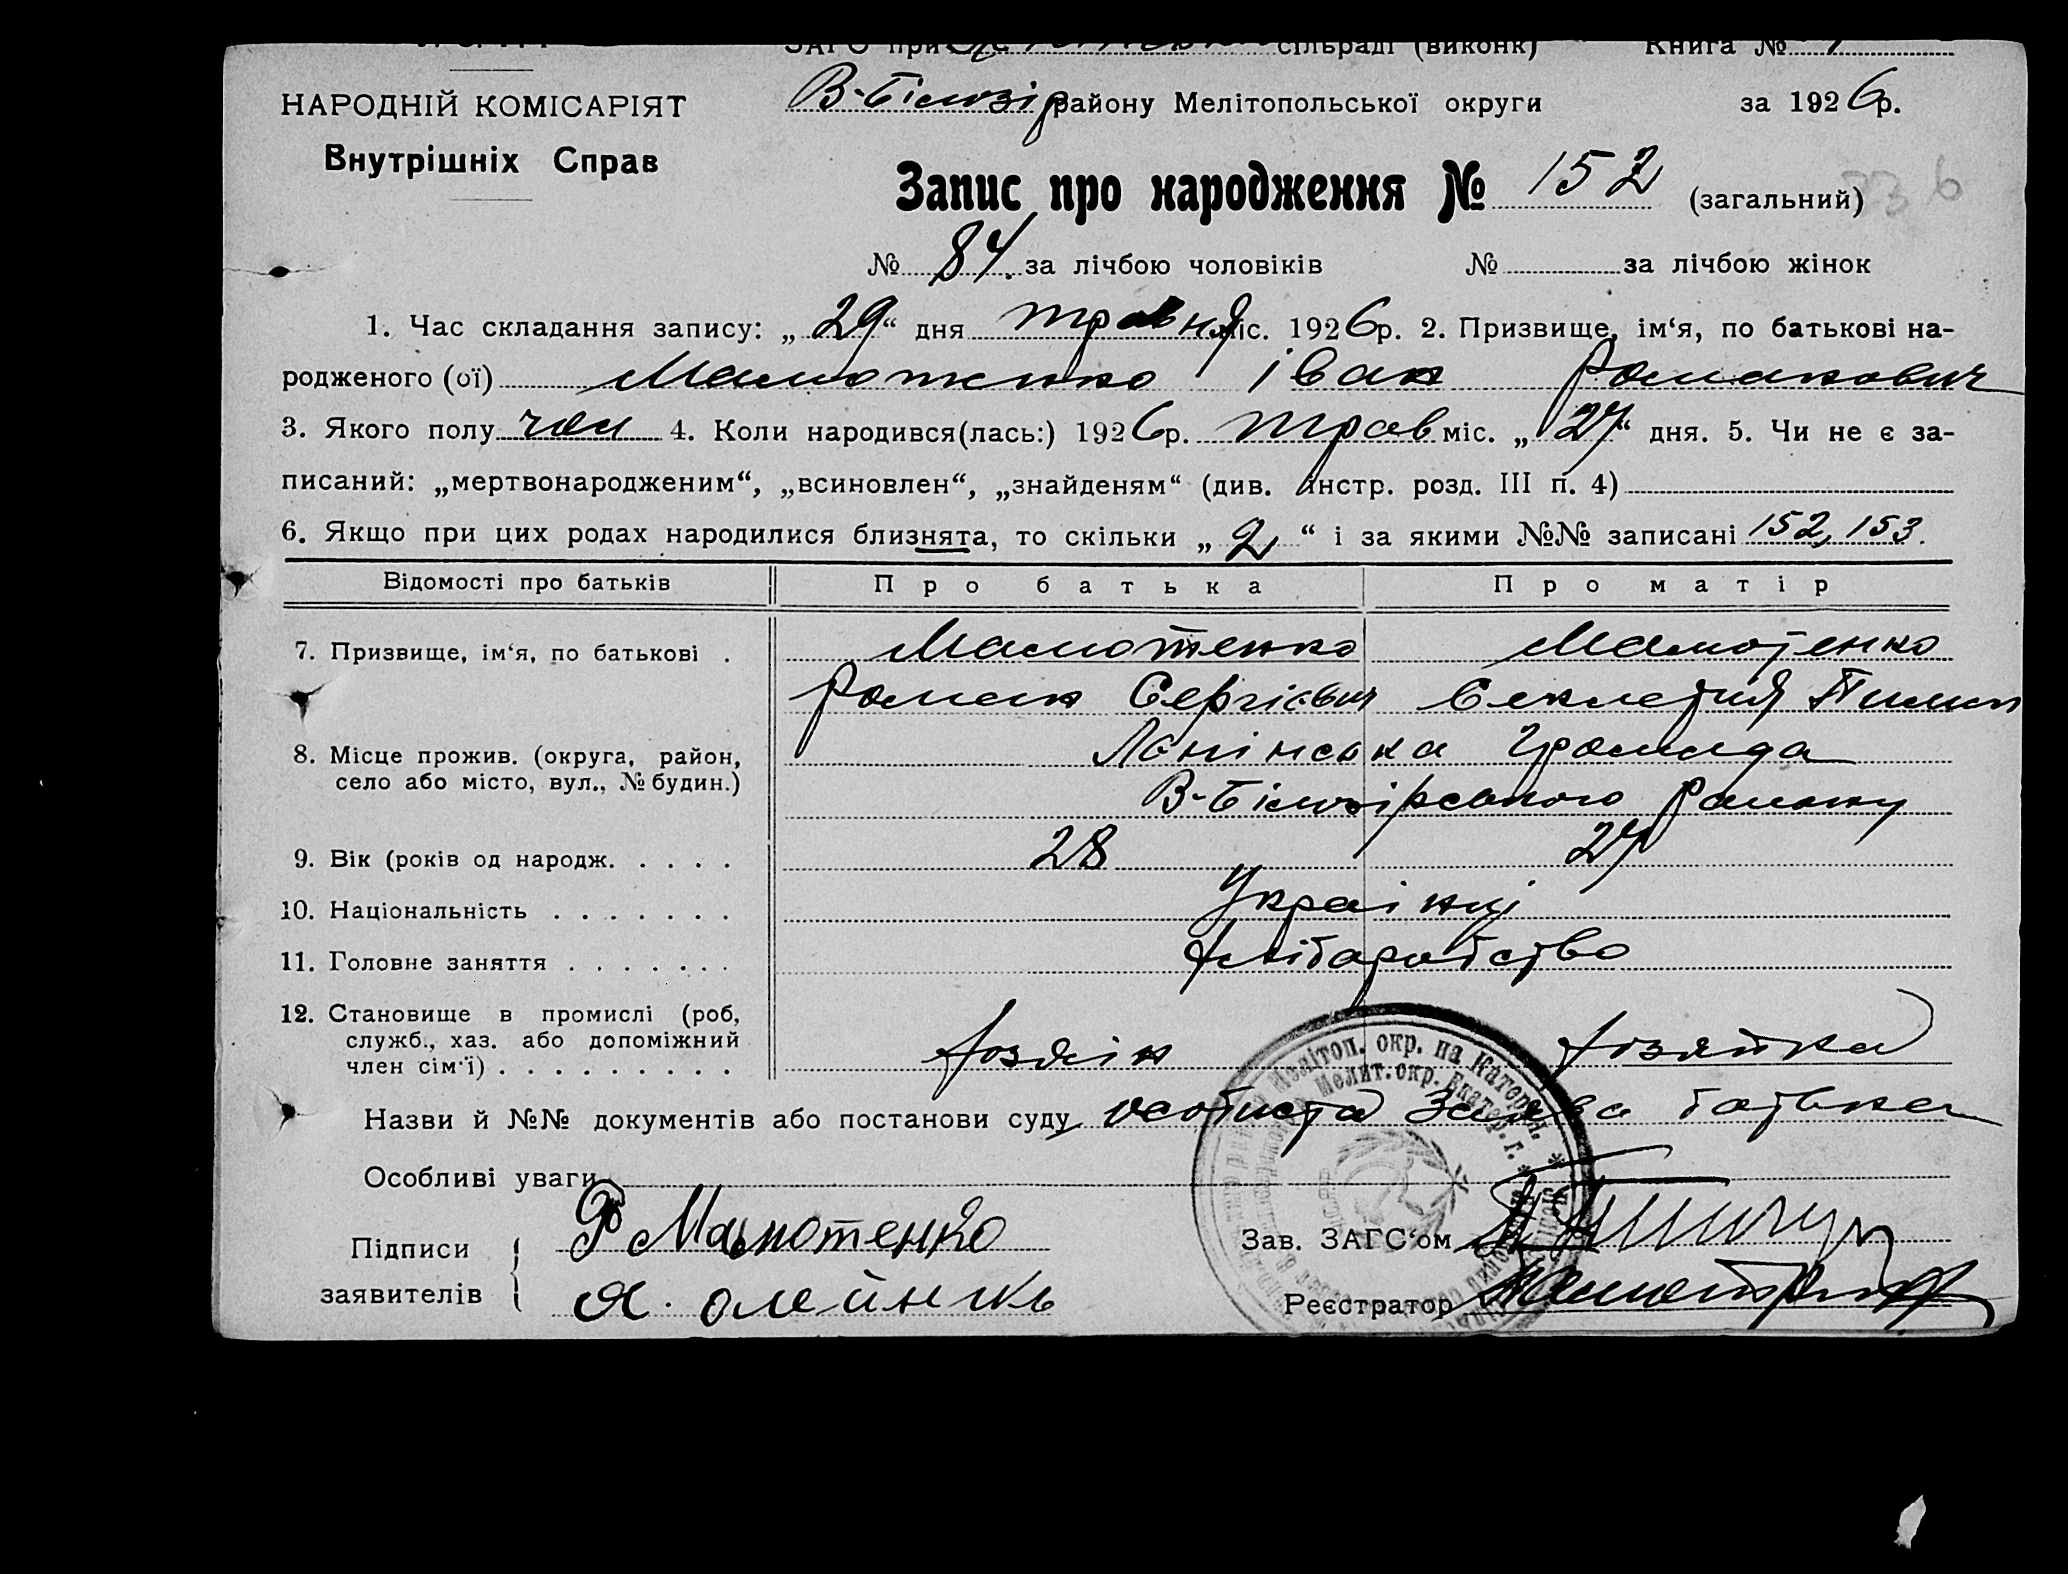 ЗАГС при сільраді (виконк) Книга №
НАРОДНІЙ КОМІСАРІЯТ
Внутрішніх Справ
В-Білозір району Мелітопольської округи за 1926р.
Запис про народження № 152 (загальний)
№ 84 за лічбою чоловіків № за лічбою жінок
1. Час складання запису: „29“ дня травня міс. 1926р. 2. Призвище, ім‘я, по батькові на-
родженого (ої) Мамотенко Іван Романович
3. Якого полу чол 4. Коли народився(лась:) 1926р. трав міс. „27“ дня. 5. Чи не є за-
писаний: „мертвонародженим“, „всиновлен“, „знайденям“ (див. інстр. розд. III п. 4)
6. Якщо при цих родах народилися близнята, то скільки „2“ і за якими №№ записані 152, 153.
Відомості про батьків Про батька Про матір
7. Призвище, ім‘я, по батькові . Мамотенко Мамотенко
Роман Сергієвич Секлетия Пилип
8. Місце прожив. (округа, район,
село або місто, вул., № будин.)
громада
В-Білозірського району
9. Вік (років од народж. . . . . 28 27
10. Національність . . . . . . . Українці
11. Головне заняття . . . . . . . хліборобство
12. Становище в промислі (роб,
служб., хаз. або допоміжний
член сім‘ї) . . . . . . . . . хозяїн хозяйка
Назви й №№ документів або постанови суду особиста заява батька
Особливі уваги
Підписи
заявителів
Р Мамотенко
Я. Олейникъ
Зав. ЗАГС‘ом
Реєстратор